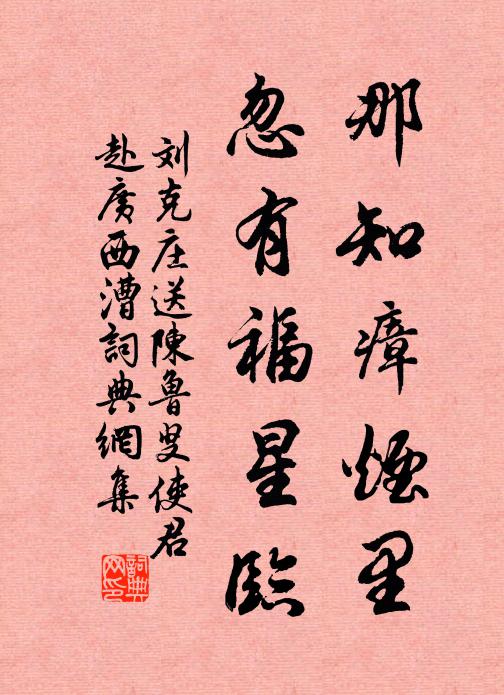 那知瘴煙里
忽有福星臨
刘克庄送陳魯叟使君
赴廣西漕詞典網集
詞典网印